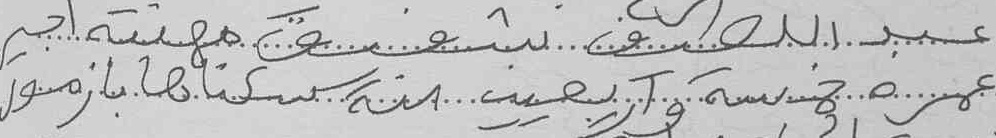 عبد الله شفيق مهنته اجير
عمره خمسة وأربعين سنة سكناها بازمور